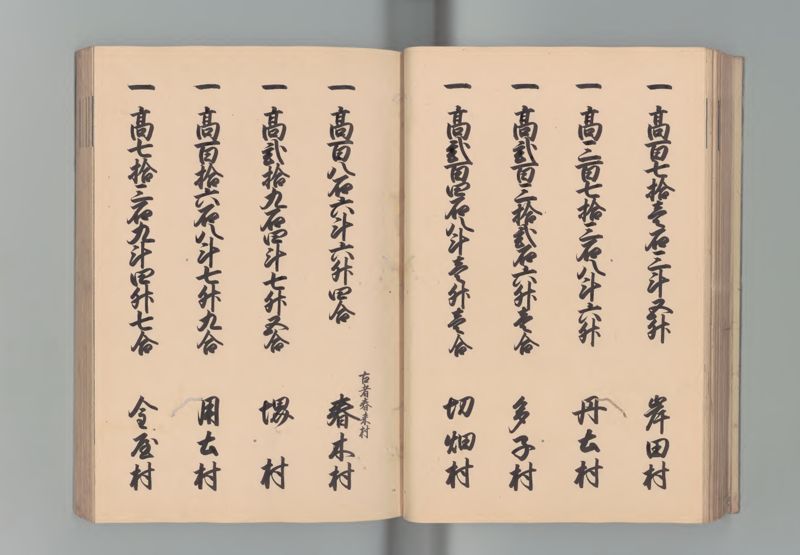 一 高百七拾壱石三斗五升 岸田村
一 高三百七拾三石八斗六升 丹土村
一 高弐百三拾弐石六升壱合 多子村
一 高弐百四石八斗壱升壱合 切畑村
一 高百八石六斗六升四合 春木村
古者春来村
一 高弐拾九石四斗七升五合 堺村
一 高百拾六石八斗七升九合 用土村
一 高七拾三石九斗四升七合 金屋村